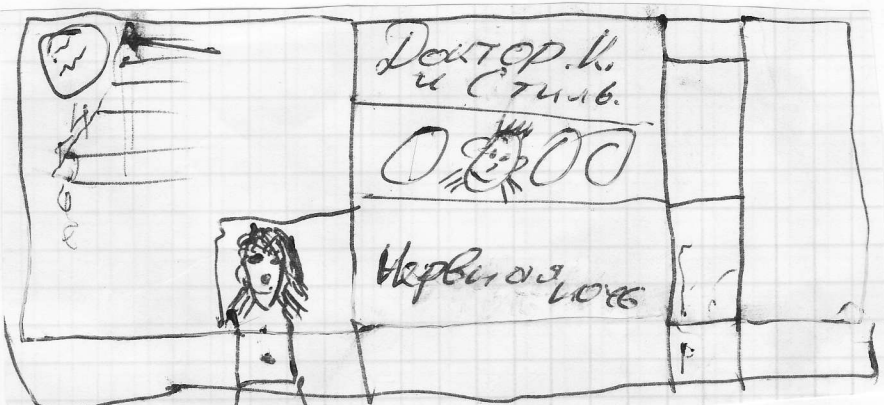 Доктор. К.
и Стиль.
Нервная
ночь
р